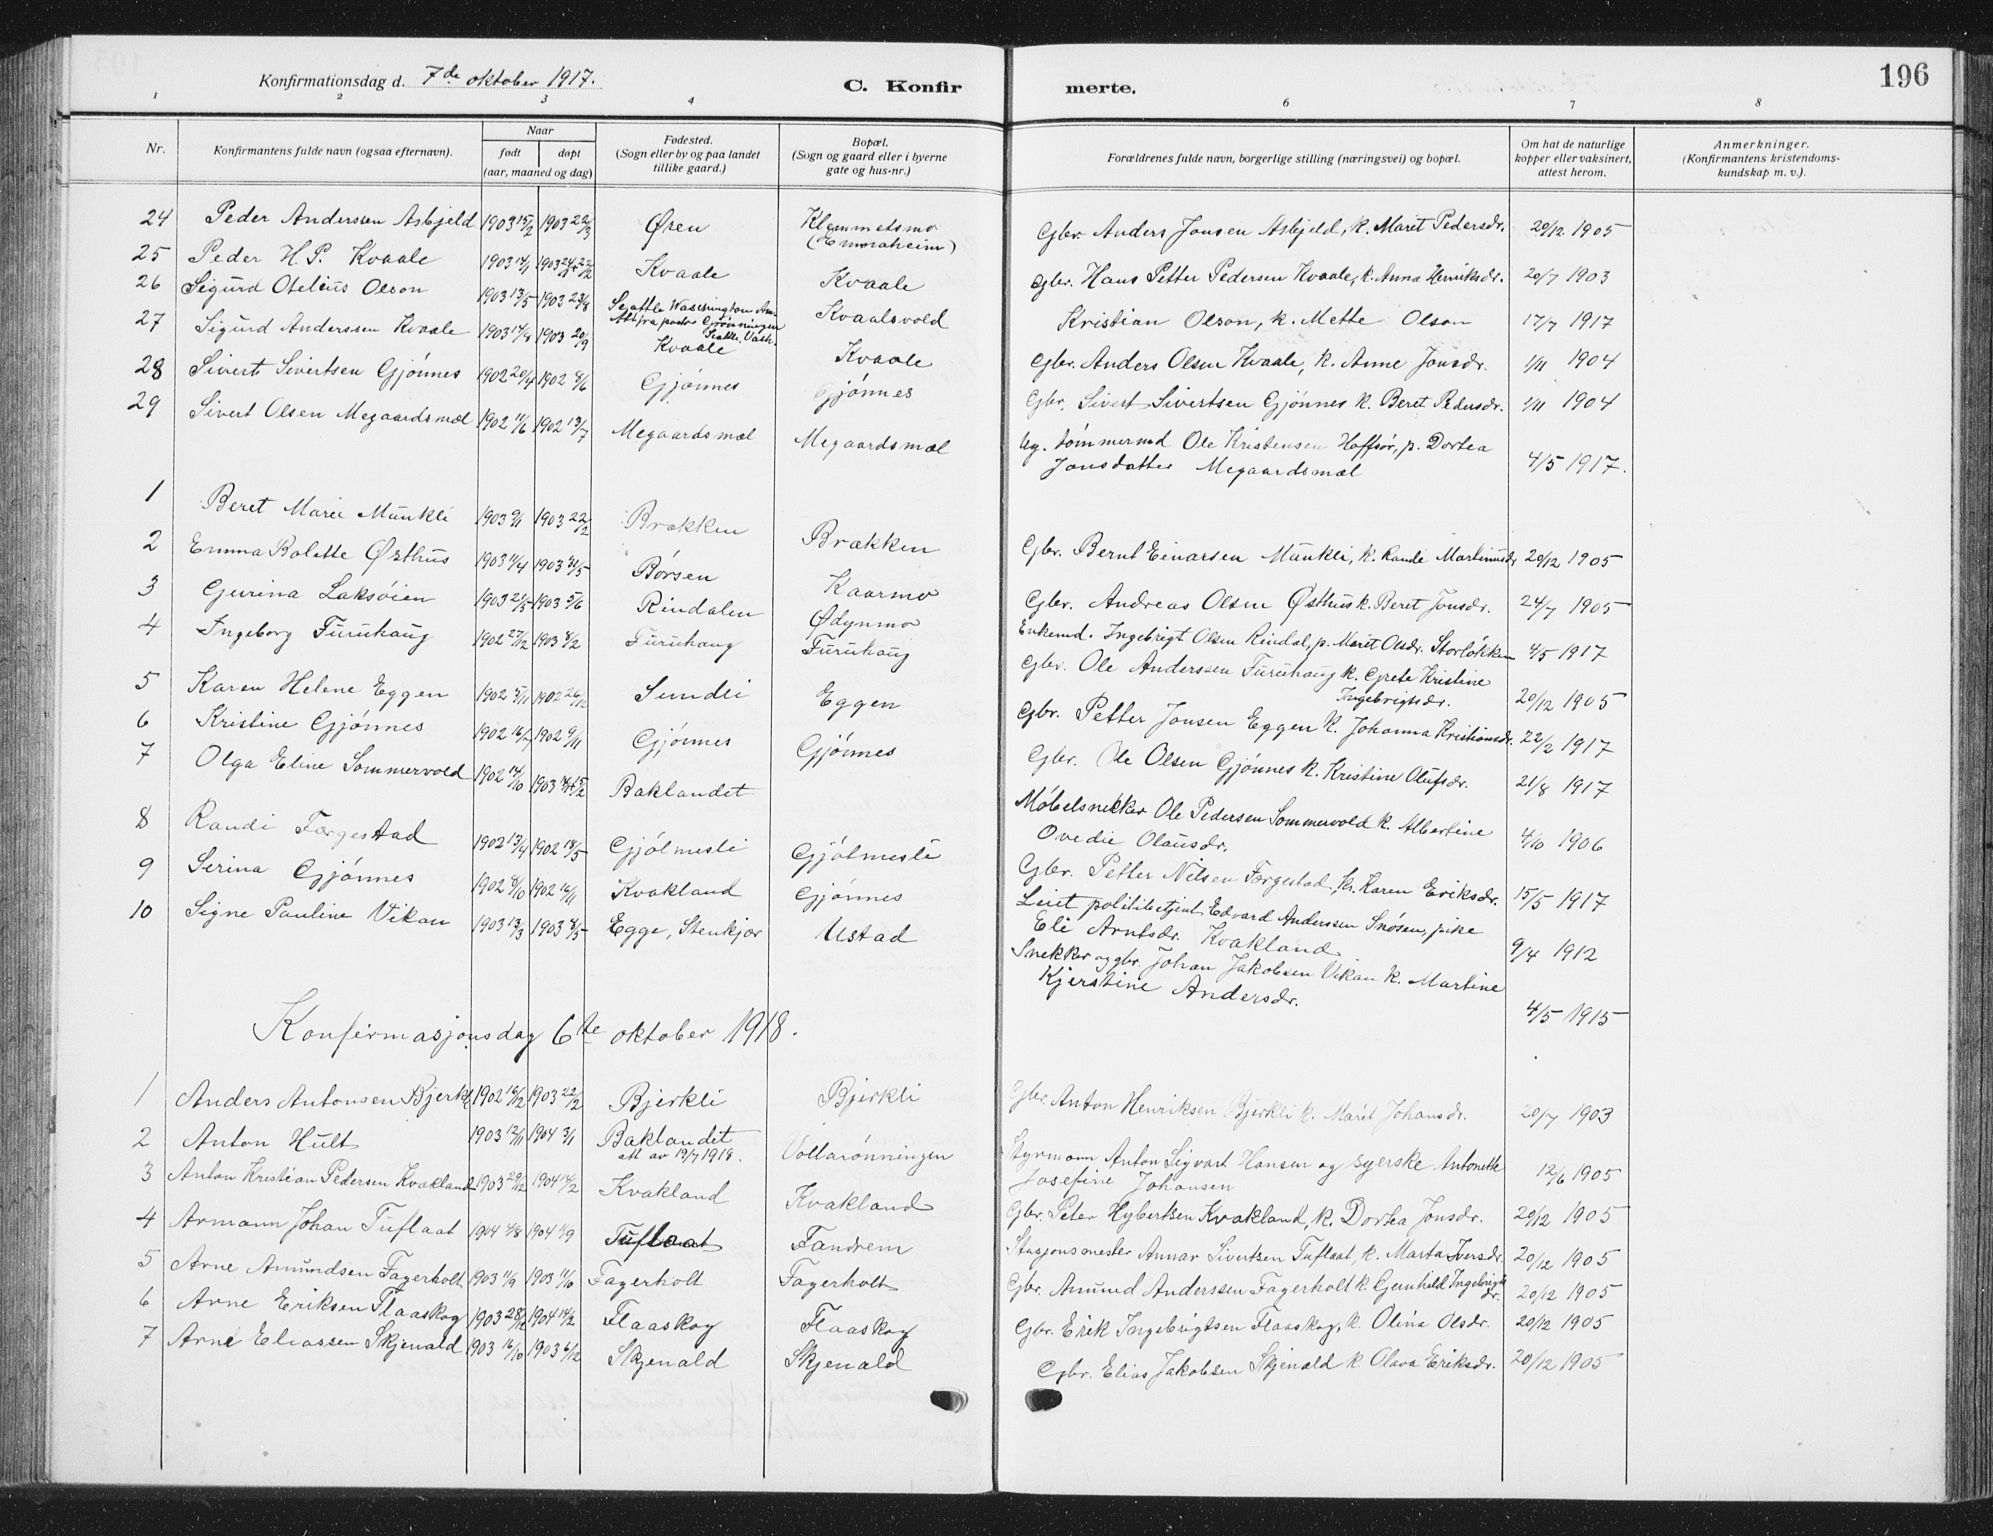 Konfirmationsdag d. 7de oktober 1917.
C. Konfirmerte.
196
1 2 3 4 6 7 8
Nr.
Konfirmantens fulde navn (ogsaa efternavn).
Naar
født døpt
(aar, maaned og dag)
Fødested.
(Sogn eller by og paa landet
tillike gaard.)
Bopæl.
(Sogn og gaard eller i byerne
gate og hus-nr.)
Forældrenes fulde navn, borgerlige stilling (næringsvei) og bopæl.
Om hat de naturlige
kopper eller vaksinert,
attest herom.
Anmerkninger.
(Konfirmantens kristendoms-
kundskap m. v.).
24 Peder Anderssen Asbjeld 1903 15/2 1903 22/3 Øren Klemmetsmo
(Emoraheim)
Gbr. Anders Jonsen Asbjeld, k. Maret Pedersdr. 20/12 1905
25 Peder H. P. Kvaale 1903 14/1 Kvaale Kvaale Gbr. Hans Petter Pedersen Kvaale, k. Anna Henriksdr. 20/7 1903
26 Sigurd Otelius Olson 1903 13/5 1903 23/8 Seattle Wasshington Am.
Att. fra pastor Grønningen
Seattle, Wash.
Kvaalsvold Kristian Olson, k. Mette Olson 17/7 1917
27 Sigurd Anderssen Kvaale 1903 14/9 1903 20/9 Kvaale Kvaale Gbr. Anders Olsen Kvaale, k. Anne Jonsdr. 1/11 1904
28 Sivert Sivertsen Gjønnes 1902 20/4 1902 8/6 Gjønnes Gjønnes Gbr. Sivert Sivertsen Gjønnes k. Beret Pedersdr. 1/11 1904
29 Sivert Olsen Megaardsmæl 1902 11/6 1902 13/7 Megaardsmæl Megaardsmæl Ug. tømmermd Ole Kristensen Hoffsør, p. Dortea
Jonsdatter Megaardsmæl 4/5 1917.
1 Beret Marie Munkli 1903 9/1 1903 22/2 Brækken Brækken Gbr. Bernt Einarsen Munkli, k. Randi Martinusdr 20/12 1905
2 Emma Bolette Østhus 1903 11/4 1903 31/5 Børsen Kaarmo Gbr. Andreas Olsen Østhus k. Beret Jonsdr. 24/7 1905
3 Gurina Laksøien 1903 21/3 1903 5/6 Rindalen Ødynmo Enkemd. Ingebrigt Olsen Rindal, p. Marit Olsdr. Storløkken 4/5 1917
4 Ingeborg Furuhaug 1902 27/12 1903 8/2 Furuhaug Furuhaug Gbr. Ole Anderssen Furuhaug k. Grete Kristine
Ingebrigtsdr. 20/12 1905
5 Karen Helene Eggen 1902 5/11 1902 26/12 Sundli Eggen Gbr. Petter Jonsen Eggen k. Johanna Kristiansdr. 22/2 1917
6 Kristine Gjønnes 1902 16/7 1902 9/11 Gjønnes Gjønnes Gbr. Ole Olsen Gjønnes k. Kristine Olufsdr. 21/8 1917
7 Olga Eline Sommervold 1902 14/10 Baklandet Møbelsnekker Ole Pedersen Sommervold k. Albertine
Ovedie Olausdr. 4/10 1906
8 Randi Færgestad 1902 13/4 1902 18/5 Gjølmesli Gjølmesli Gbr. Petter Nilsen Færgestad, k. Karen Eriksdr. 15/5 1917
9 Serina Gjønnes 1902 8/10 1902 16/11 Kvakland Gjønnes politibetjent Edvard Anderssen Snøsen, pike
Eli Arntsdr. Kvakland 9/4 1912
10 Signe Pauline Vikan 1903 13/3 1903 8/5 Egge, Stenkjær Ustad Snekker og gbr. Johan Jakobsen Vikan k. Martine
Kjerstine Andersdr. 4/5 1915
Konfirmasjonsdag 6te oktober 1918.
1 Anders Antonsen Bjerkli 1902 16/12 1903 22/2 Bjerkli Bjerkli Gbr. Anton Henriksen Bjerkli k. Marit Johansdr. 20/7 1903
2 Anton Hult 1903 12/11 1904 3/1 Baklandet
att. av 19/7 1918.
Vollarønningen Styrmann Anton Sigvart Hansen og syerske Antonette
Josefine Johansen 12/6 1905
3 Anton Kristian Pedersen Kvakland 1903 29/12 1904 14/2 Kvakland Kvakland Gbr. Peter Hybertsen Kvakland, k. Dortea Jonsdr. 20/12 1905
4 Armann Johan Tuflaat 1904 4/8 1904 11/9 Tuflaat Fandrem Stasjonsmester Annar Sivertsen Tuflaat, k. Marta Iversdr. 20/12 1905
5 Arne Amundsen Fagerholt 1903 11/9 1903 11/10 Fagerholt Fagerholt Gbr. Amund Anderssen Fagerholt k. Gunhild Ingebrigts
dr. 20/12 1905
6 Arne Eriksen Flaaskog 1903 28/12 1904 14/2 Flaaskog Flaaskog Gbr. Erik Ingebrigtsen Flaaskog, k. Olina Olsdr. 20/12 1905
7 Arne Eliassen Skjenald 1903 16/10 1903 6/12 Skjenald Skjenald Gbr. Elias Jakobsen Skjenald k. Olava Eriksdr. 20/12 1905